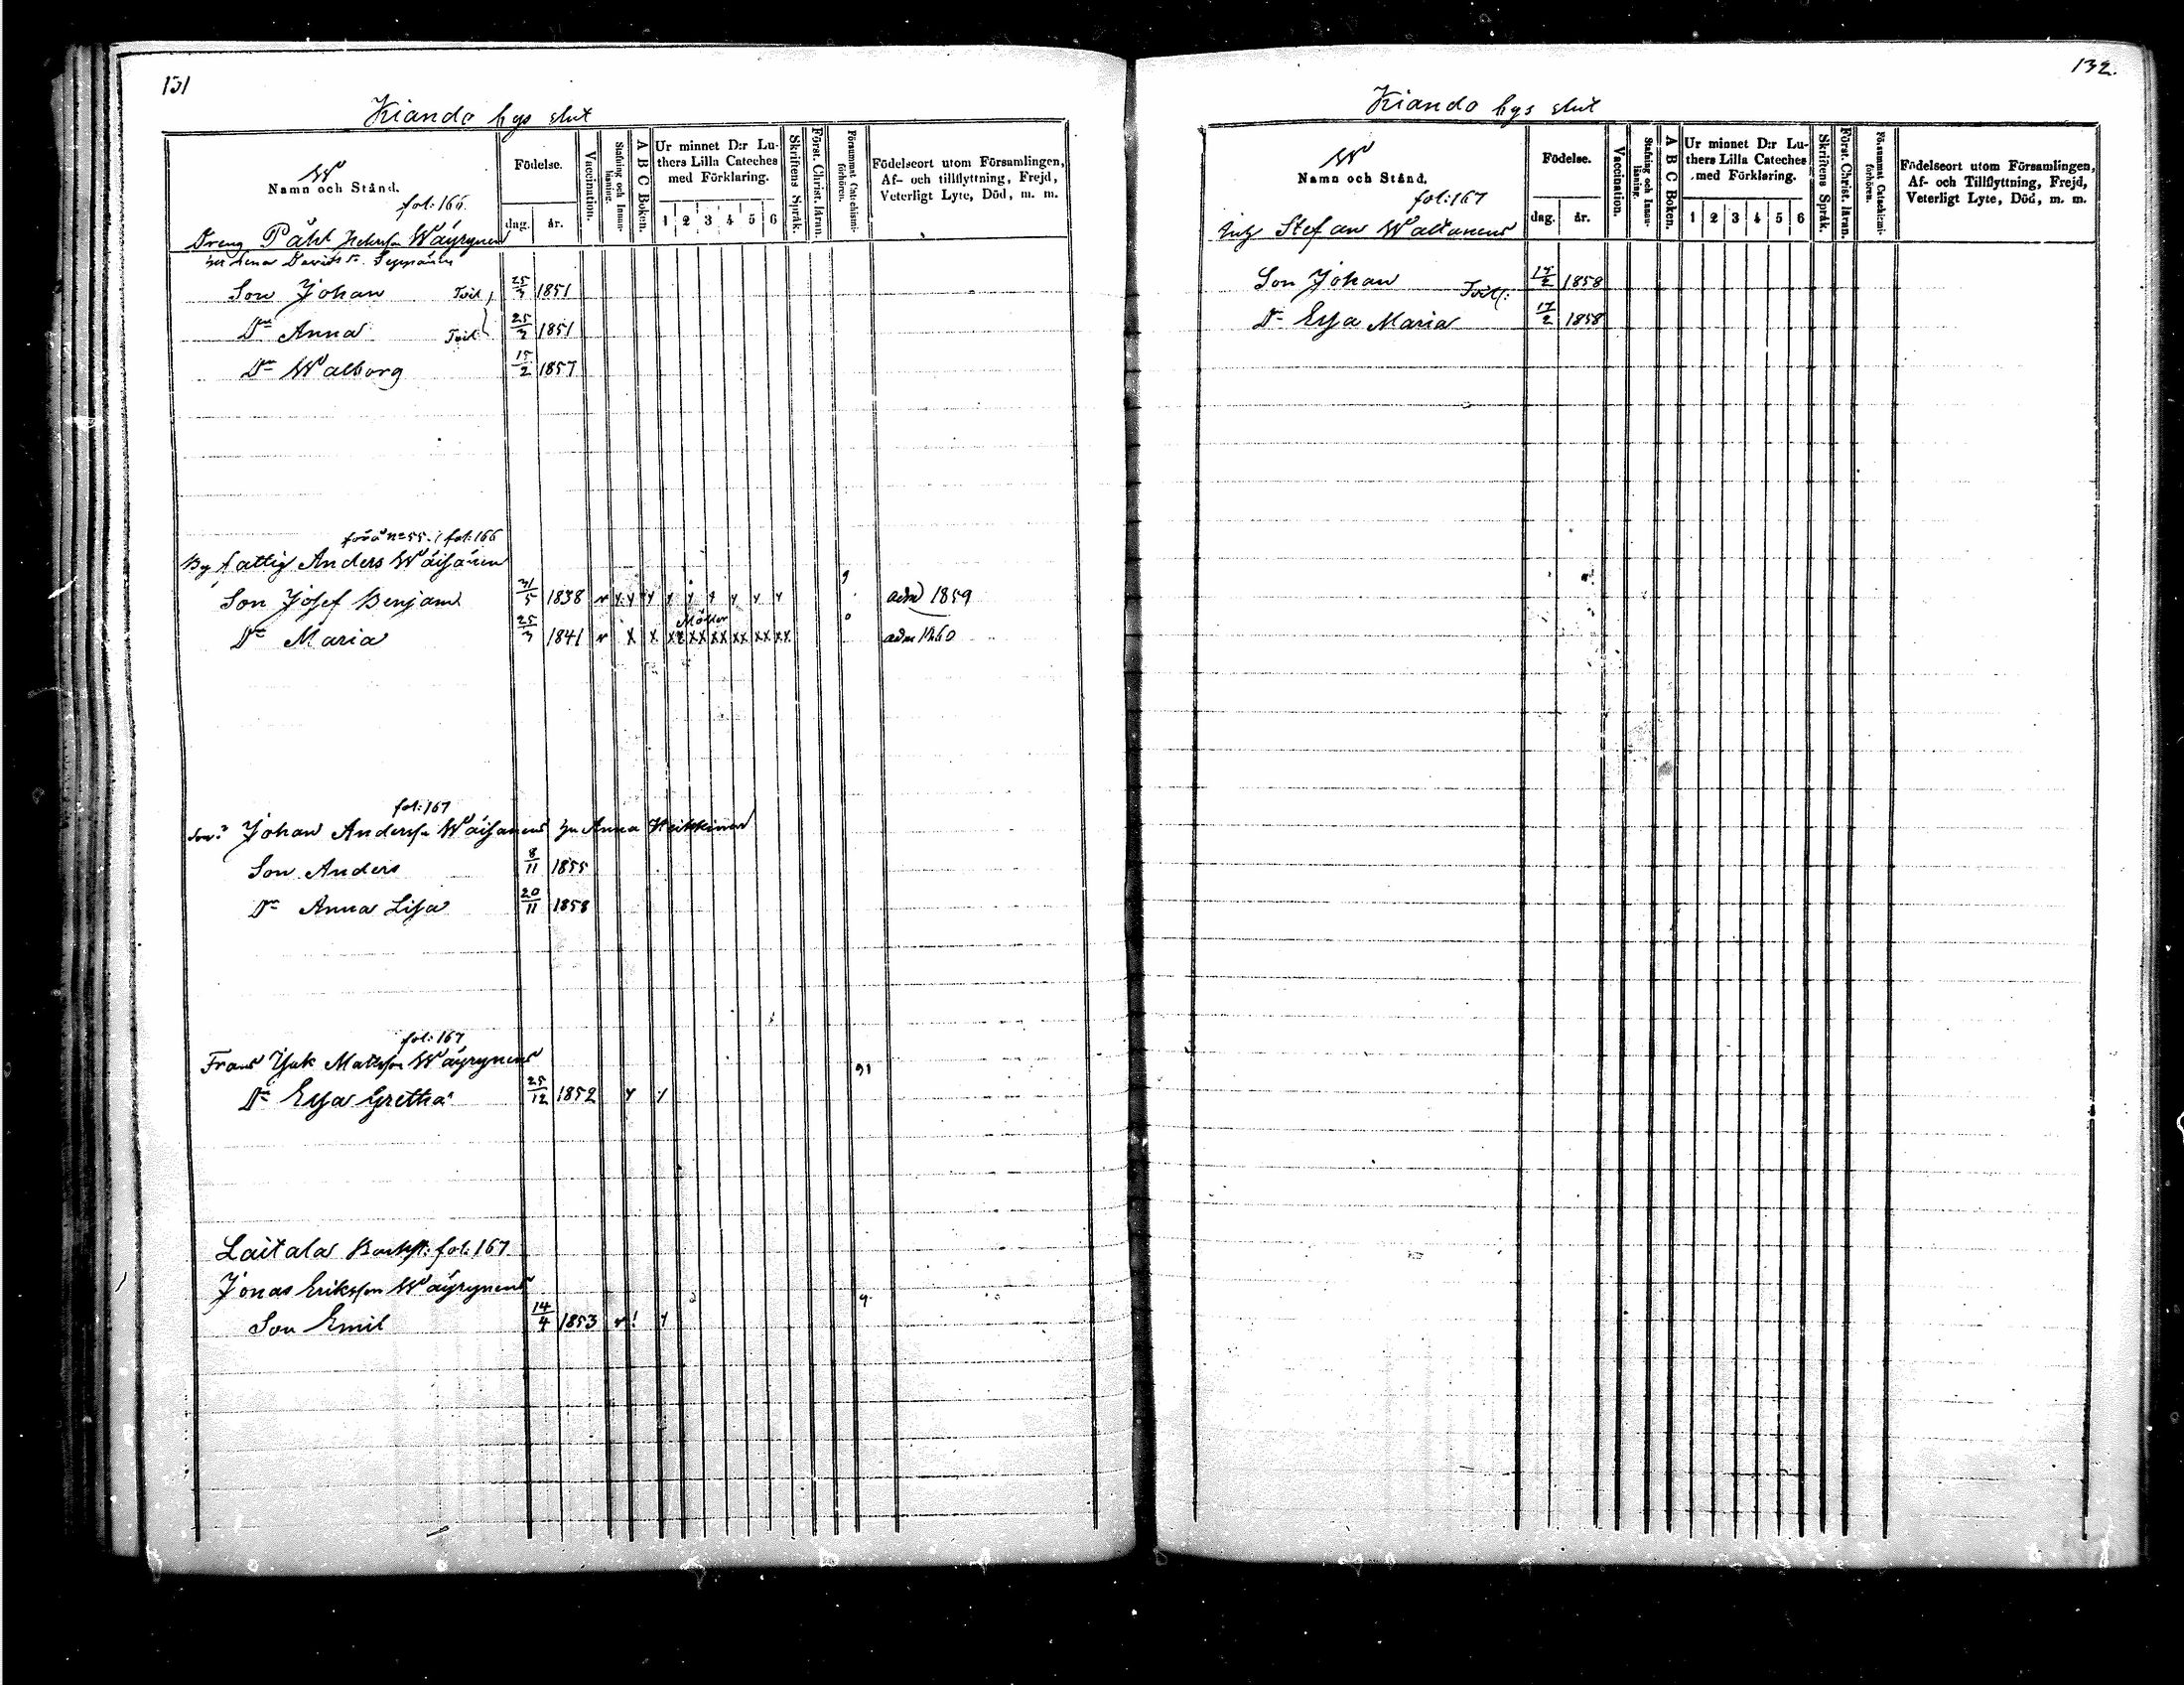 131
Kiando bys slut
W
Namn och Stånd.
Födelse.
dag. år.
Vaccination.
Stafning och Innanläsning.
A B C Boken.
Ur minnet D:r Luthers Lilla Cateches med Förklaring.
1 2 3 4 5 6
Skriftens Språk.
Först. Christ. läran.
Försummat Catechismiförhören.
Födelseort utom Församlingen, Af- och tillflyttning, Frejd, Veterligt Lyte, Död, m. m.
fol: 166.
Dreng Påhl Wäyrynen
Son Johan Tvil 25/3 1851
Dr Anna Tvil 25/3 1851
Dr Walborg 15/2 1857
fol: 166
By fattig Anders Wäisänen
Son Josef Benjam 31/5 1838 v y y y y y y y y y 9 adm 1859
Möller
Dr Maria 25/3 1841 v x x xx xx xx xx xx xx adm 1860
fol: 167
Johan Anderss Wäisänen hu Anna Heikkinen
Son Anders 8/11 1855
Dr Anna Lisa 20/11 1858
fol: 167
Frans Isak Matsson Wäyrynen
Dr Eva Gretha 25/12 1852 y y 91
Laitala Backst: fol: 167
Jonas Eriksson Wäyrynen
Son Emil 14/4 1853 v ! y 9
132.
Kiando bys slut
W
Namn och Stånd.
Födelse.
dag. år.
Vaccination.
Stafning och Innanläsning.
A B C Boken.
Ur minnet D:r Luthers Lilla Cateches med Förklaring.
1 2 3 4 5 6
Skriftens Språk.
Först. Christ. läran.
Försummat Catechismiförhören.
Födelseort utom Församlingen, Af- och Tillflyttning, Frejd, Veterligt Lyte, Död, m. m.
fol: 167
Inh Stefan Waltanen
Son Johan Tvill: 17/2 1858
Dr Eva Maria 17/2 1858